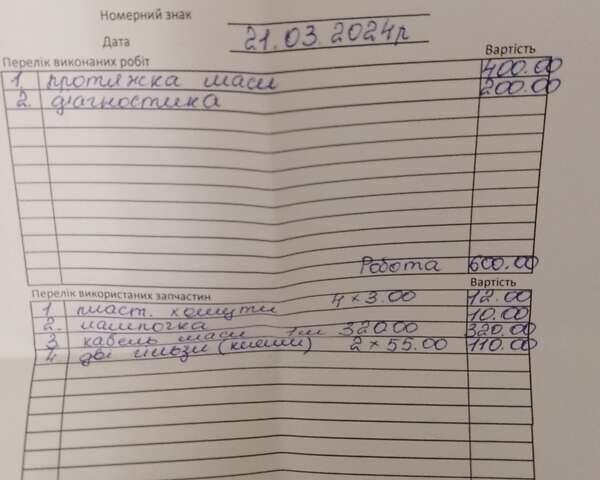 Номерний знак
Дата 21.03.2024р
Перелік виконаних робіт Вартість
1. протяжка маси 400.00
2. діагностика 200.00
Робота 600.00
Перелік використаних запчастин Вартість
1 пласт. хомути 4×3.00 12.00
2. лампочка 10.00
3 кабель маси 1м 320.00 320.00
4 дві гільзи (клеми) 2×55.00 110.00